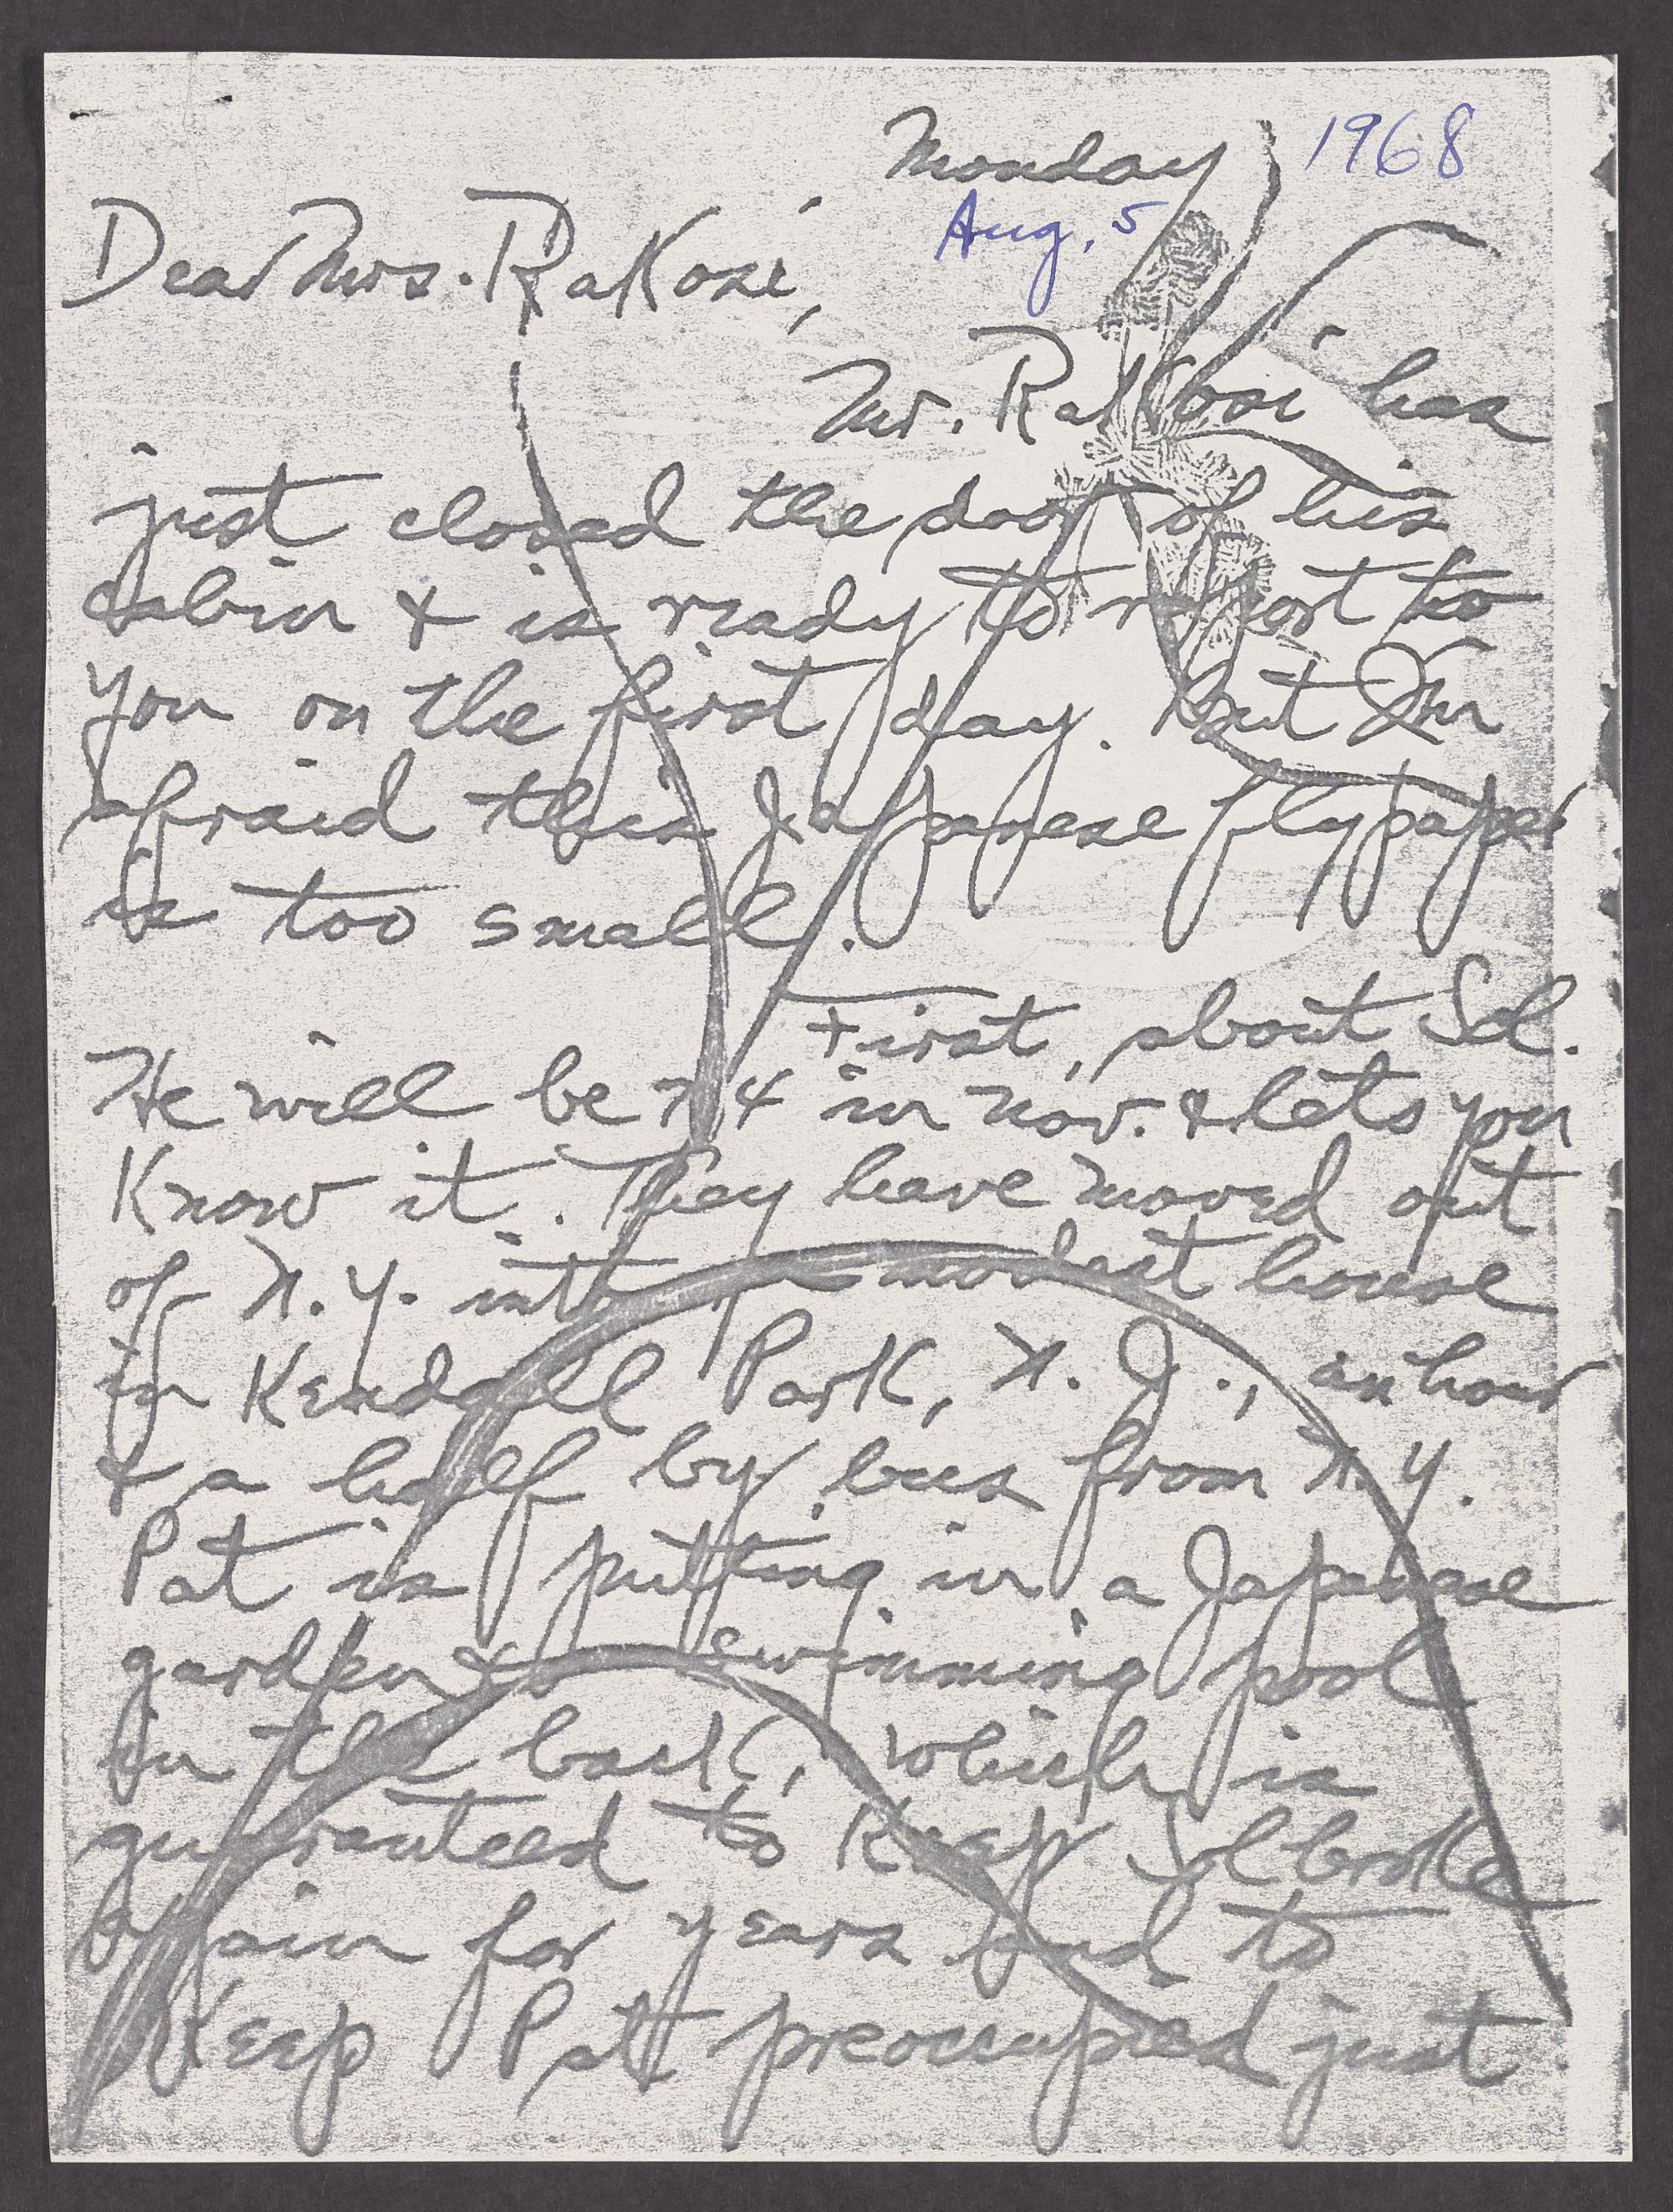 Monday 1968
Aug. 5
Dear Mrs. Rakosi,
Mr. Rakosi has
just closed the door of his
cabin & is ready to report to
you on the first day. But I'm
afraid this Japanese flypaper
is too small.
First, about Sol.
He will be 74 in Nov. & lets you
Know it. They have moved out
of N. Y. into a modest house
in Kendall Park, N. J., an hour
& a half by bus from N. Y.
Pat is putting in a Japanese
garden & swimming pool
in the back, which is
guaranteed to Keep Sol broke
again for years and to
Keep Pat preoccupied just